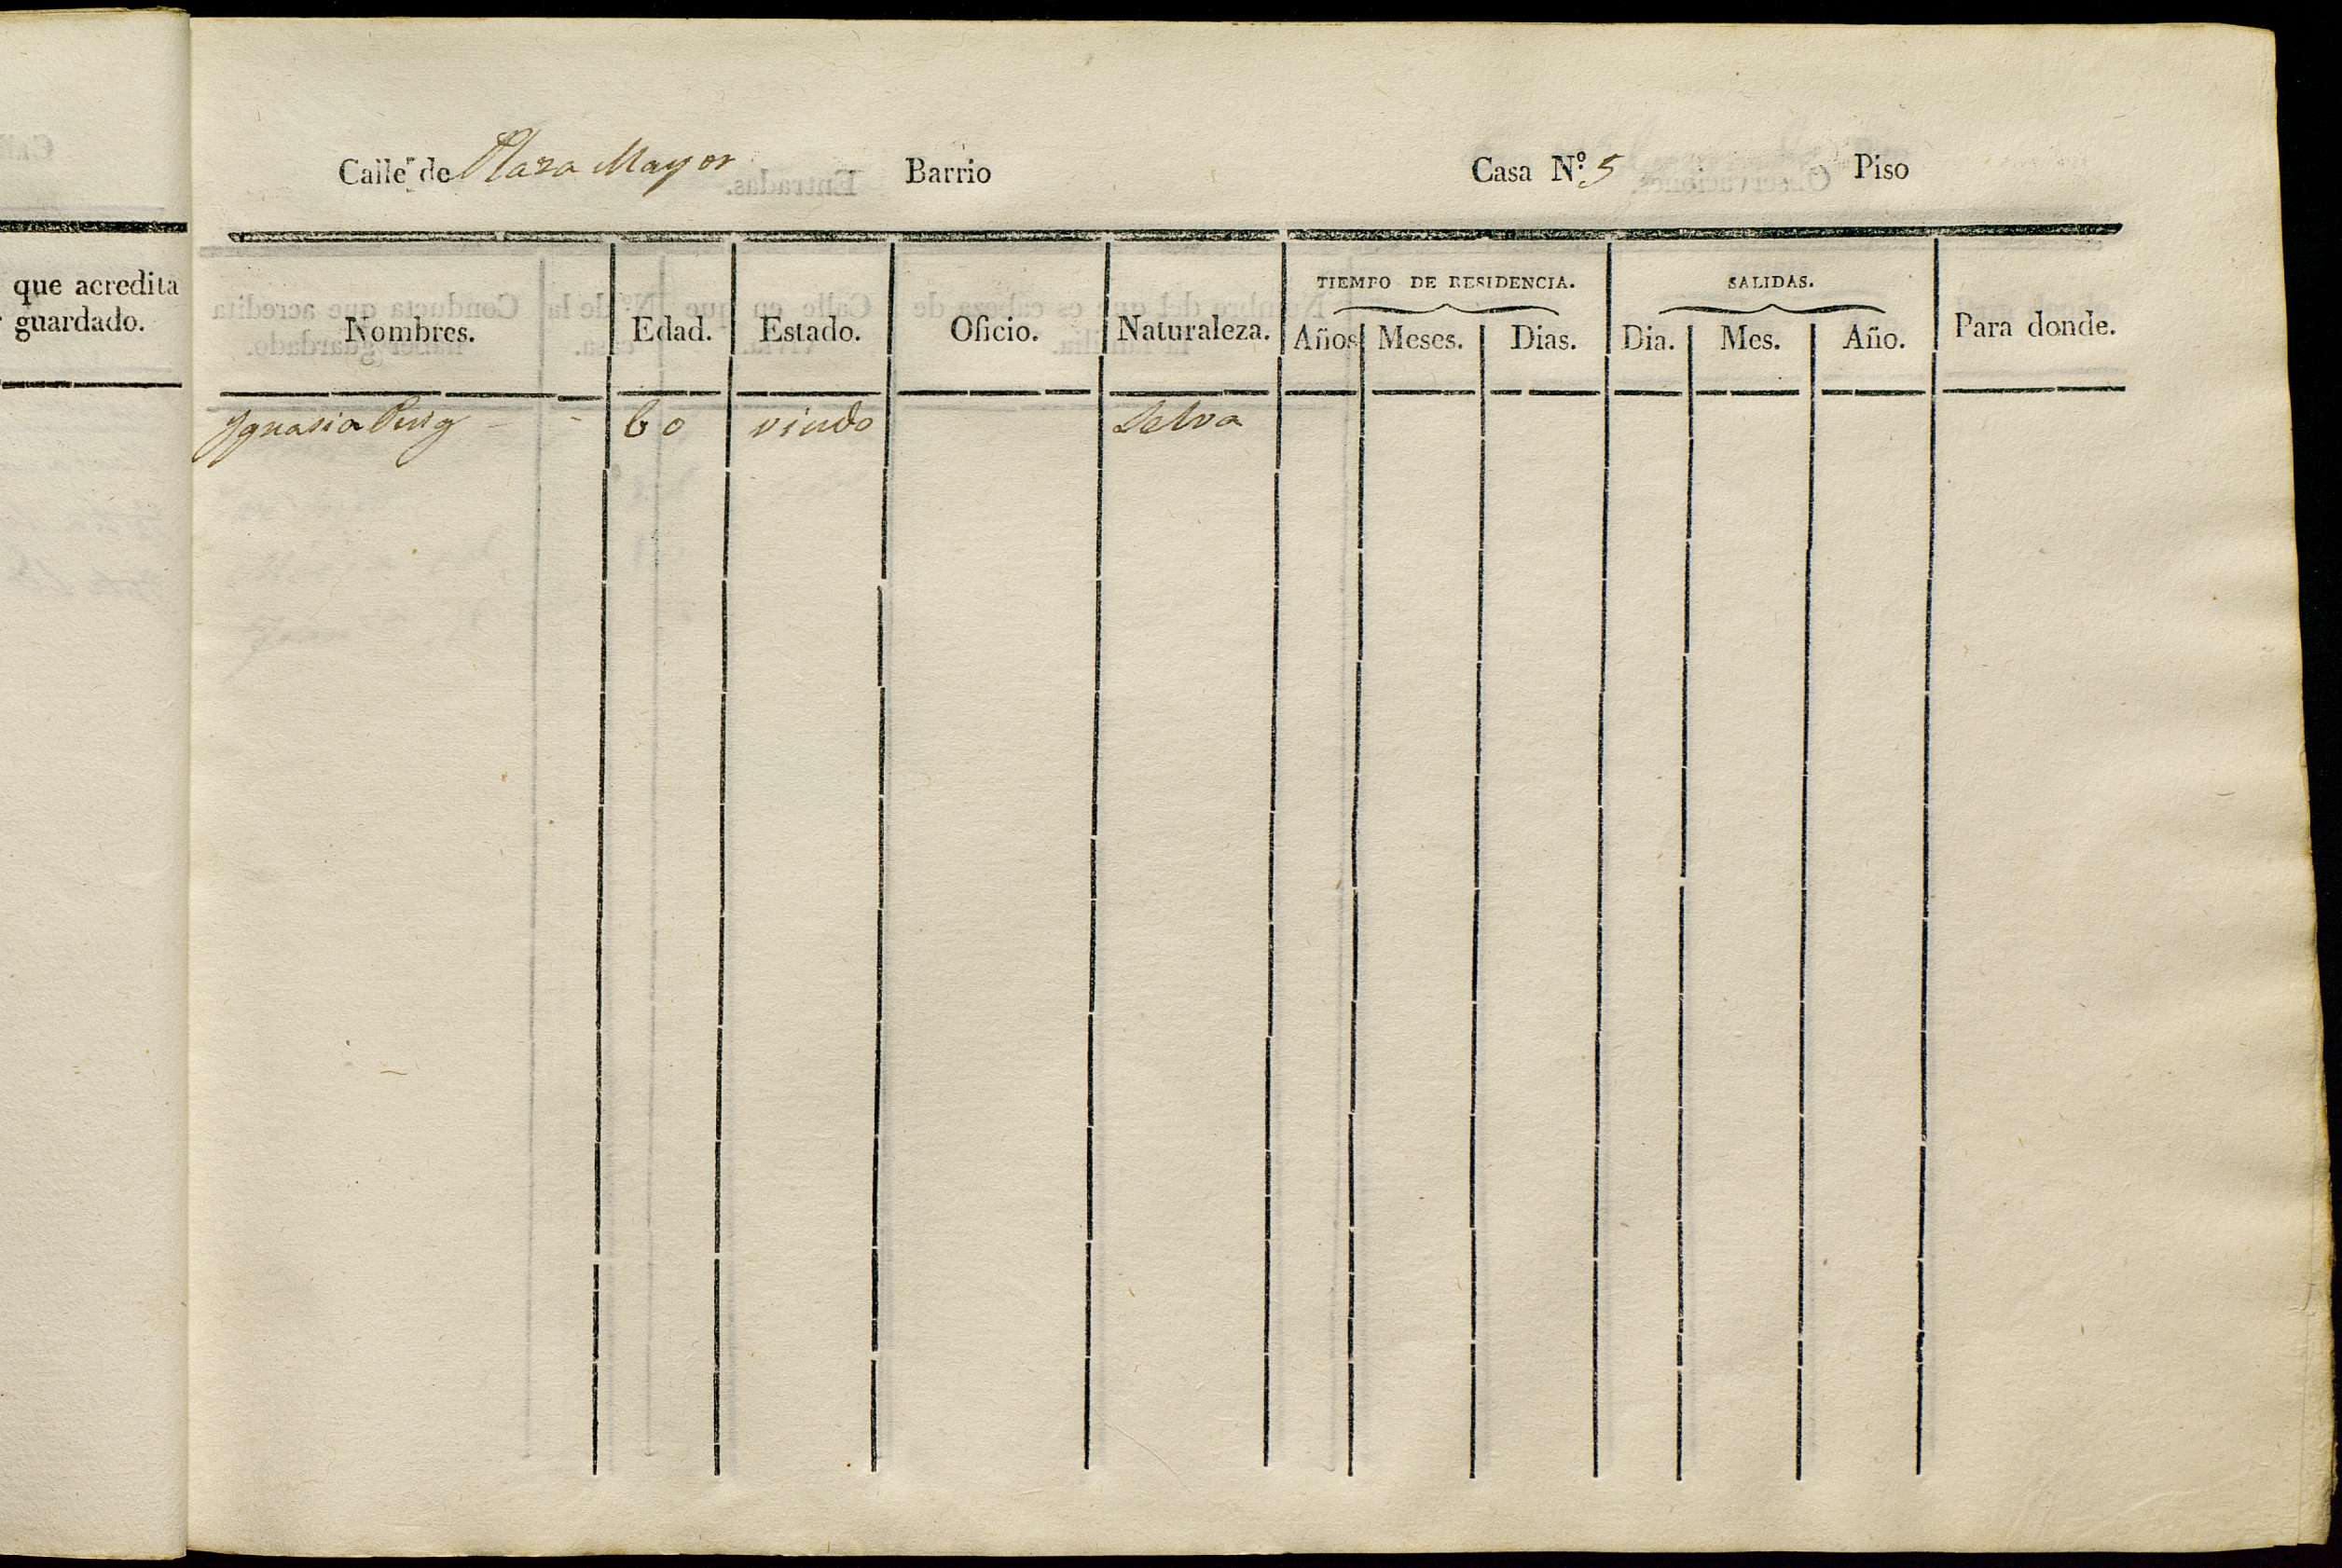 que acredita
guardado.
Calle de Plaza Mayor Barrio Casa N.º 5 Piso
TIEMPO DE RESIDENCIA. SALIDAS.
Nombres. Edad. Estado. Oficio. Naturaleza. Años Meses. Dias. Dia. Mes. Año. Para donde.
Ygnasia Puig - - 60 viudo Selva